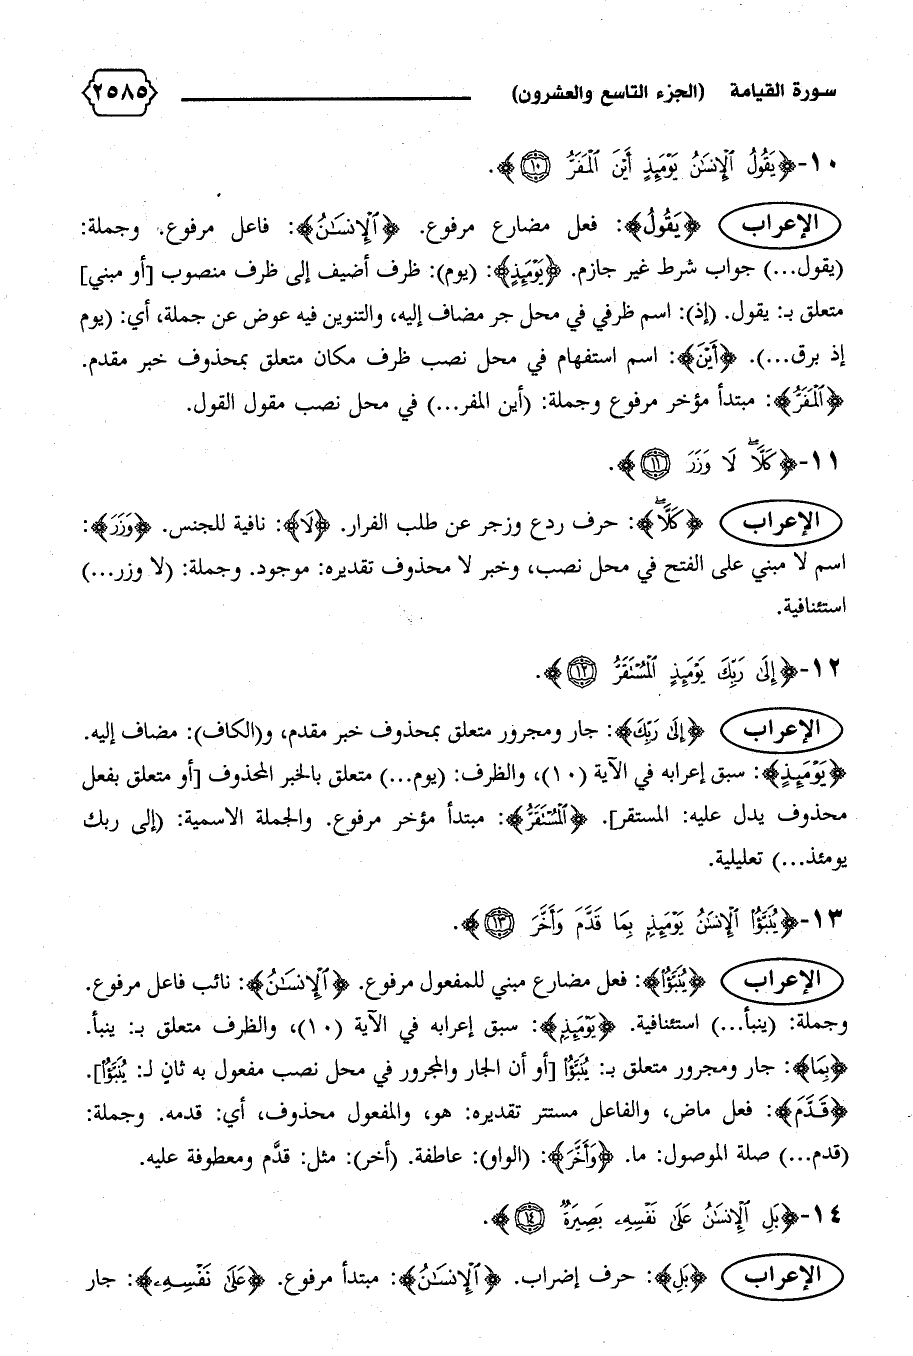 سورة القيامة (الجزء التاسع والعشرون) ٢٥٨٥
١٠-﴿يَقُولُ ٱلْإِنسَٰنُ يَوْمَئِذٍ أَيْنَ ٱلْمَفَرُّ ۝١٠﴾.
الإعراب ﴿يَقُولُ﴾: فعل مضارع مرفوع. ﴿ٱلْإِنسَٰنُ﴾: فاعل مرفوع. وجملة:
(يقول...) جواب شرط غير جازم. ﴿يَوْمَئِذٍ﴾: (يوم): ظرف أضيف إلى ظرف منصوب [أو مبني]
متعلق بـ: يقول. (إذ): اسم ظرفي في محل جر مضاف إليه، والتنوين فيه عوض عن جملة، أي: (يوم
إذ برق...). ﴿أَيْنَ﴾: اسم استفهام في محل نصب ظرف مكان متعلق بمحذوف خبر مقدم.
﴿ٱلْمَفَرُّ﴾: مبتدأ مؤخر مرفوع وجملة: (أين المفر...) في محل نصب مقول القول.
١١-﴿كَلَّا ۖ لَا وَزَرَ ۝١١﴾.
الإعراب ﴿كَلَّا ۖ﴾: حرف ردع وزجر عن طلب الفرار. ﴿لَا﴾: نافية للجنس. ﴿وَزَرَ﴾:
اسم لا مبني على الفتح في محل نصب، وخبر لا محذوف تقديره: موجود. وجملة: (لا وزر...)
استئنافية.
١٢-﴿إِلَىٰ رَبِّكَ يَوْمَئِذٍ ٱلْمُسْتَقَرُّ ۝١٢﴾.
الإعراب ﴿إِلَىٰ رَبِّكَ﴾: جار ومجرور متعلق بمحذوف خبر مقدم، و(الكاف): مضاف إليه.
﴿يَوْمَئِذٍ﴾: سبق إعرابه في الآية (١٠)، والظرف: (يوم...) متعلق بالخبر المحذوف [أو متعلق بفعل
محذوف يدل عليه: المستقر]. ﴿ٱلْمُسْتَقَرُّ﴾: مبتدأ مؤخر مرفوع. والجملة الاسمية: (إلى ربك
يومئذ...) تعليلية.
١٣-﴿يُنَبَّؤُا۟ ٱلْإِنسَٰنُ يَوْمَئِذٍۭ بِمَا قَدَّمَ وَأَخَّرَ ۝١٣﴾.
الإعراب ﴿يُنَبَّؤُا۟﴾: فعل مضارع مبني للمفعول مرفوع. ﴿ٱلْإِنسَٰنُ﴾: نائب فاعل مرفوع.
وجملة: (ينبأ...) استئنافية. ﴿يَوْمَئِذٍۭ﴾: سبق إعرابه في الآية (١٠)، والظرف متعلق بـ: ينبأ.
﴿بِمَا﴾: جار ومجرور متعلق بـ: يُنَبَّؤُا۟ [أو أن الجار والمجرور في محل نصب مفعول به ثانٍ لـ: يُنَبَّؤُا۟].
﴿قَدَّمَ﴾: فعل ماض، والفاعل مستتر تقديره: هو، والمفعول محذوف، أي: قدمه. وجملة:
(قدم...) صلة الموصول: ما. ﴿وَأَخَّرَ﴾: (الواو): عاطفة. (أخر): مثل: قدَّم ومعطوفة عليه.
١٤-﴿بَلِ ٱلْإِنسَٰنُ عَلَىٰ نَفْسِهِۦ بَصِيرَةٌ ۝١٤﴾.
الإعراب ﴿بَلِ﴾: حرف إضراب. ﴿ٱلْإِنسَٰنُ﴾: مبتدأ مرفوع. ﴿عَلَىٰ نَفْسِهِۦ﴾: جار